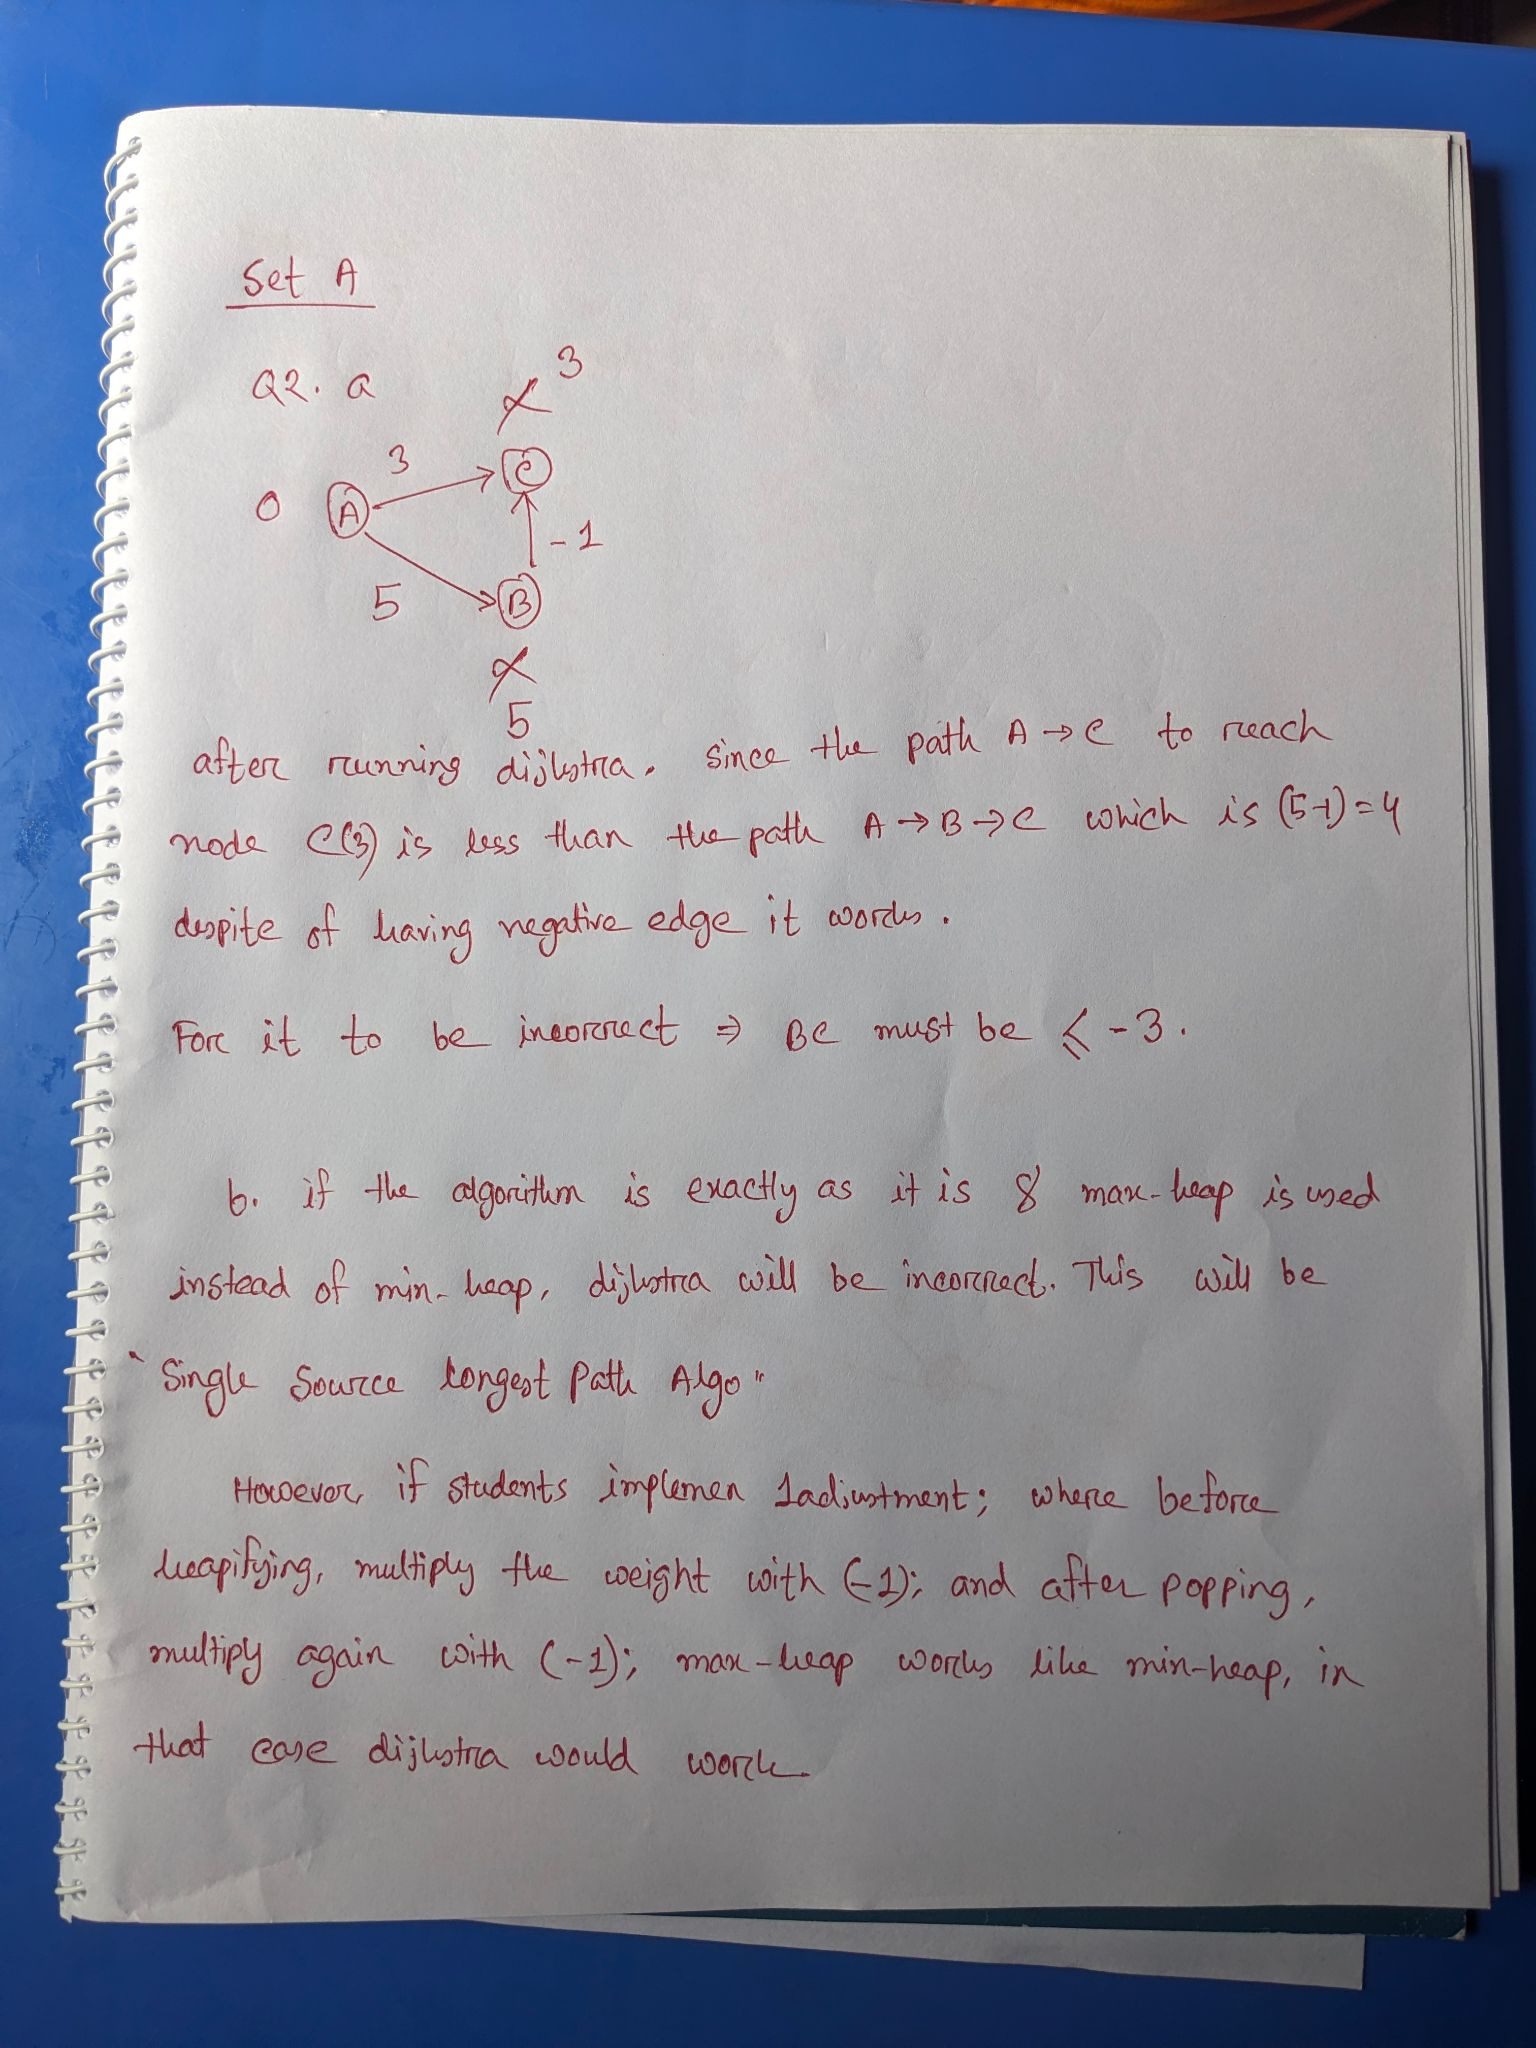 Set A
Q2. a
∝ 3
3
C
0
A
-1
5
B
∝
5
after running dijkstra. Since the path A → C to reach
node C(3) is less than the path A → B → C which is (5-1)=4
despite of having negative edge it works.
For it to be incorrect ⇒ BC must be ≤ -3.
b. if the algorithm is exactly as it is & max-heap is used
instead of min-heap, dijkstra will be incorrect. This will be
"Single Source Longest Path Algo"
However, if students implemen 1 adjustment; where before
heapifying, multiply the weight with (-1); and after popping,
multipy again with (-1); max-heap works like min-heap, in
that case dijkstra would work.